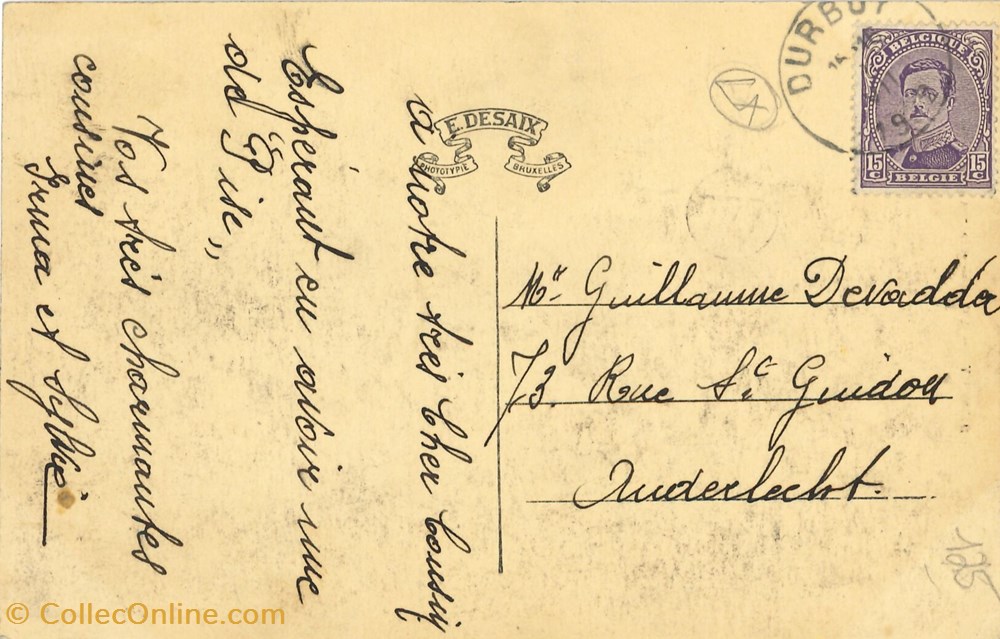 a notre très cher cousin
Espérant en avoir une
de "Pise"
Vos très charmantes
cousines
Irma et Sylvie
E. DESAIX
PHOTOTYPIE BRUXELLES
DURBUY
BELGIQUE
15 c 15 c
BELGIE
Mr Guillaume Devadder
73. Rue St Guidon
Anderlecht.
125
© CollecOnline.com